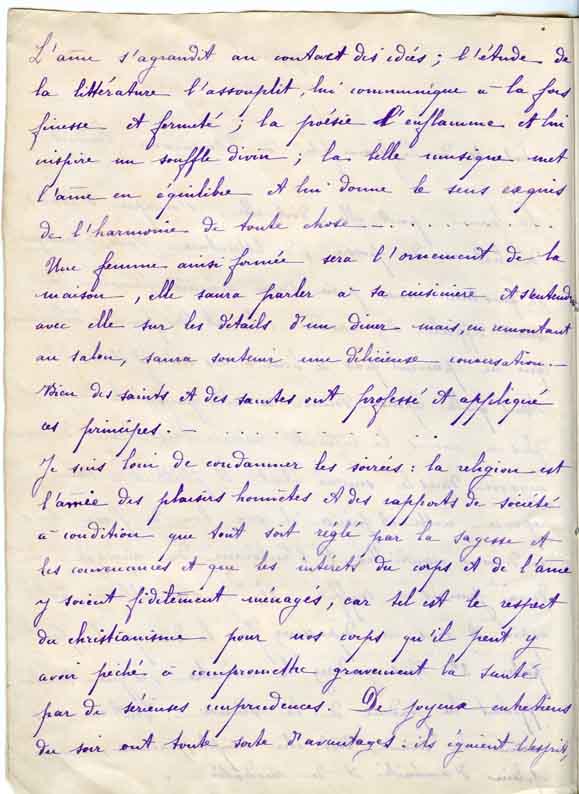 L'âme s'agrandit au contact des idées ; l'étude de
la littérature l'assouplit, lui communique à la fois
finesse et fermeté ; la poésie l'enflamme et lui
inspire un souffle divin ; la belle musique met
l'âme en équilibre et lui donne le sens exquis
de l'harmonie de toute chose . . . . . . . .
Une femme ainsi formée sera l'ornement de la
maison, elle saura parler à sa cuisinière et s'entendre
avec elle sur les détails d'un diner mais, en remontant
au salon, saura soutenir une délicieuse conversation. —
Bien des saints et des saintes ont professé et appliqué
ces principes. — . . . . . . . .
Je suis loin de condamner les soirées : la religion est
l'amie des plaisirs honnêtes et des rapports de société
à condition que tout soit réglé par la sagesse et
les convenances et que les intérêts du corps et de l'âme
y soient fidèlement ménagés, car tel est le respect
du christianisme pour nos corps qu'il peut y
avoir péché à compromettre gravement la santé
par de sérieuses imprudences. De joyeux entretiens
du soir ont toute sorte d'avantages : ils égaient l'esprit,